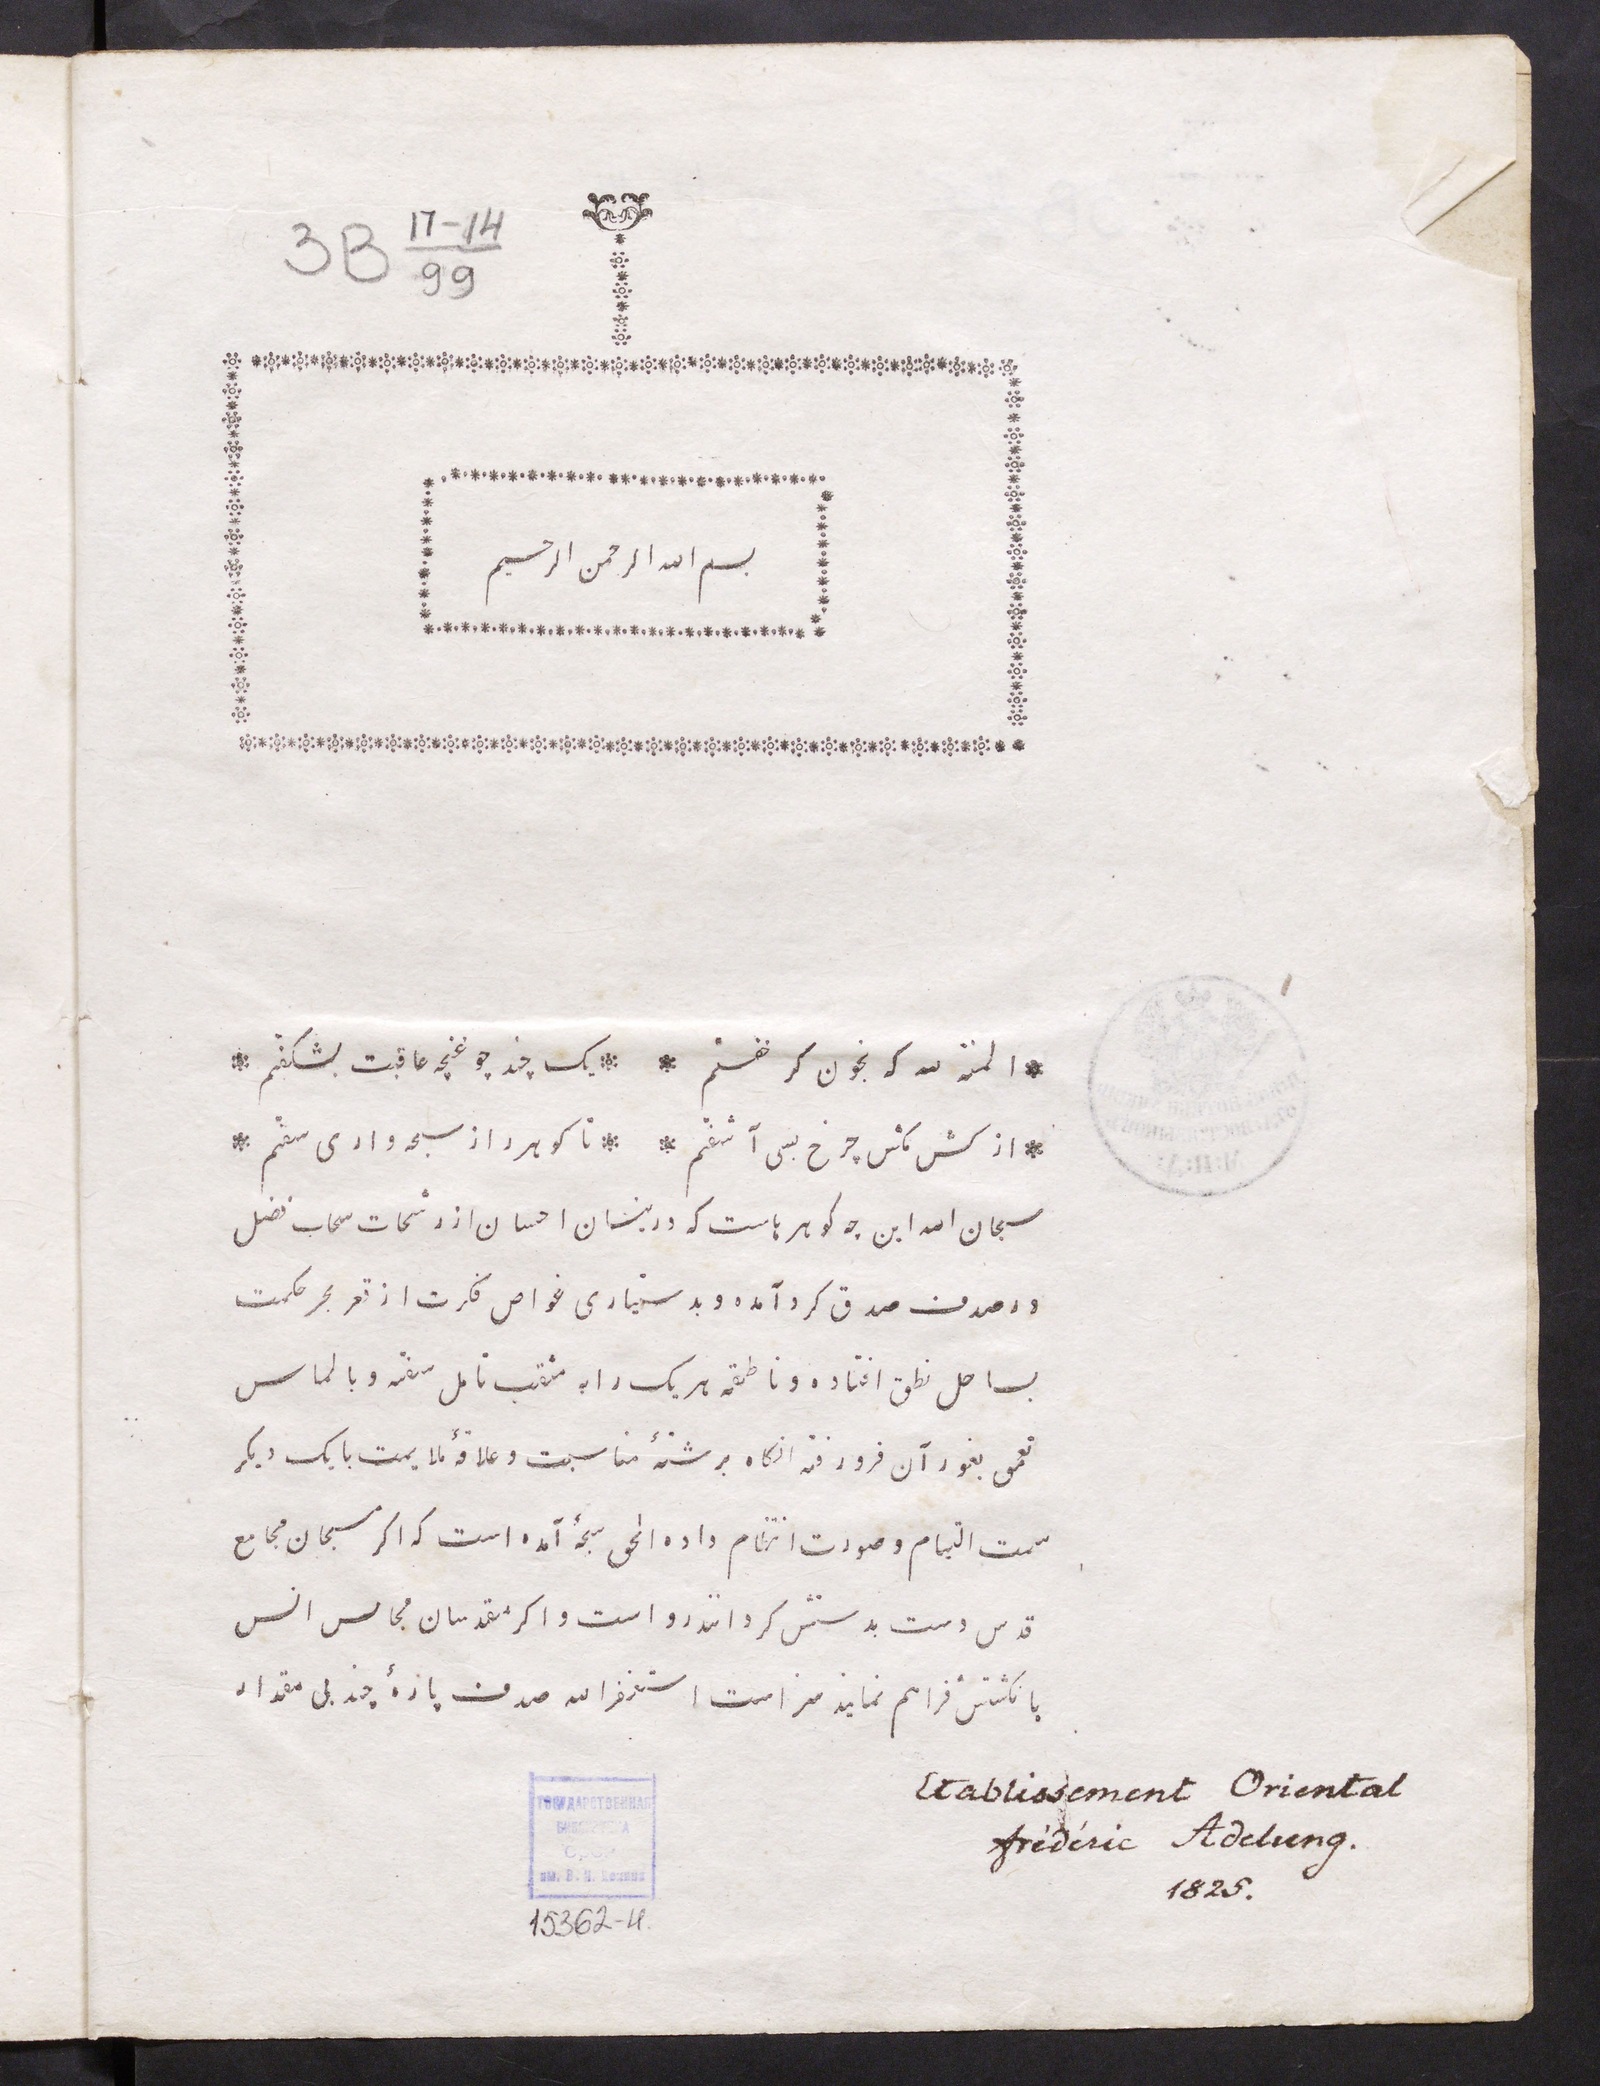 3B 17-14
99
بسم الله الرحمن الرحیم
* المنة لله که بخون گر خفتم * * یک چند چو غنچه عاقبت بشکفتم *
* از کش مکش چرخ بسی آشفتم * * تا کوهر راز سبحه واری سفتم *
سبحان الله این چه کوهرهاست که در نیسان احسان از رشحات سحاب فضل
در صدف صدق کرد آمده و بدستیاری غواص فکرت از قعر بحر حکمت
بساحل نطق افتاده و ناطقه هر یک را به مثقب تامل سفته و بالماس
تعمق بغور آن فرو رفته انکاه برشتهٔ مناسبت و علاقهٔ ملایمت با یک دیکر
سمت التیام و صورت انتظام داده الحق سبحهٔ آمده است که اکر مسبحان مجامع
قدس دست بدستش کردانند رواست و اکر مقدسان مجالس انس
بانکشتش فراهم نمایند سزاست استغفر الله صدف پارهٔ چند بی مقدار
Etablissement Oriental
frédéric Adelung.
1825.
ГОСУДАРСТВЕННАЯ
БИБЛИОТЕКА
СССР
им. В. И. Ленина
15362-И.